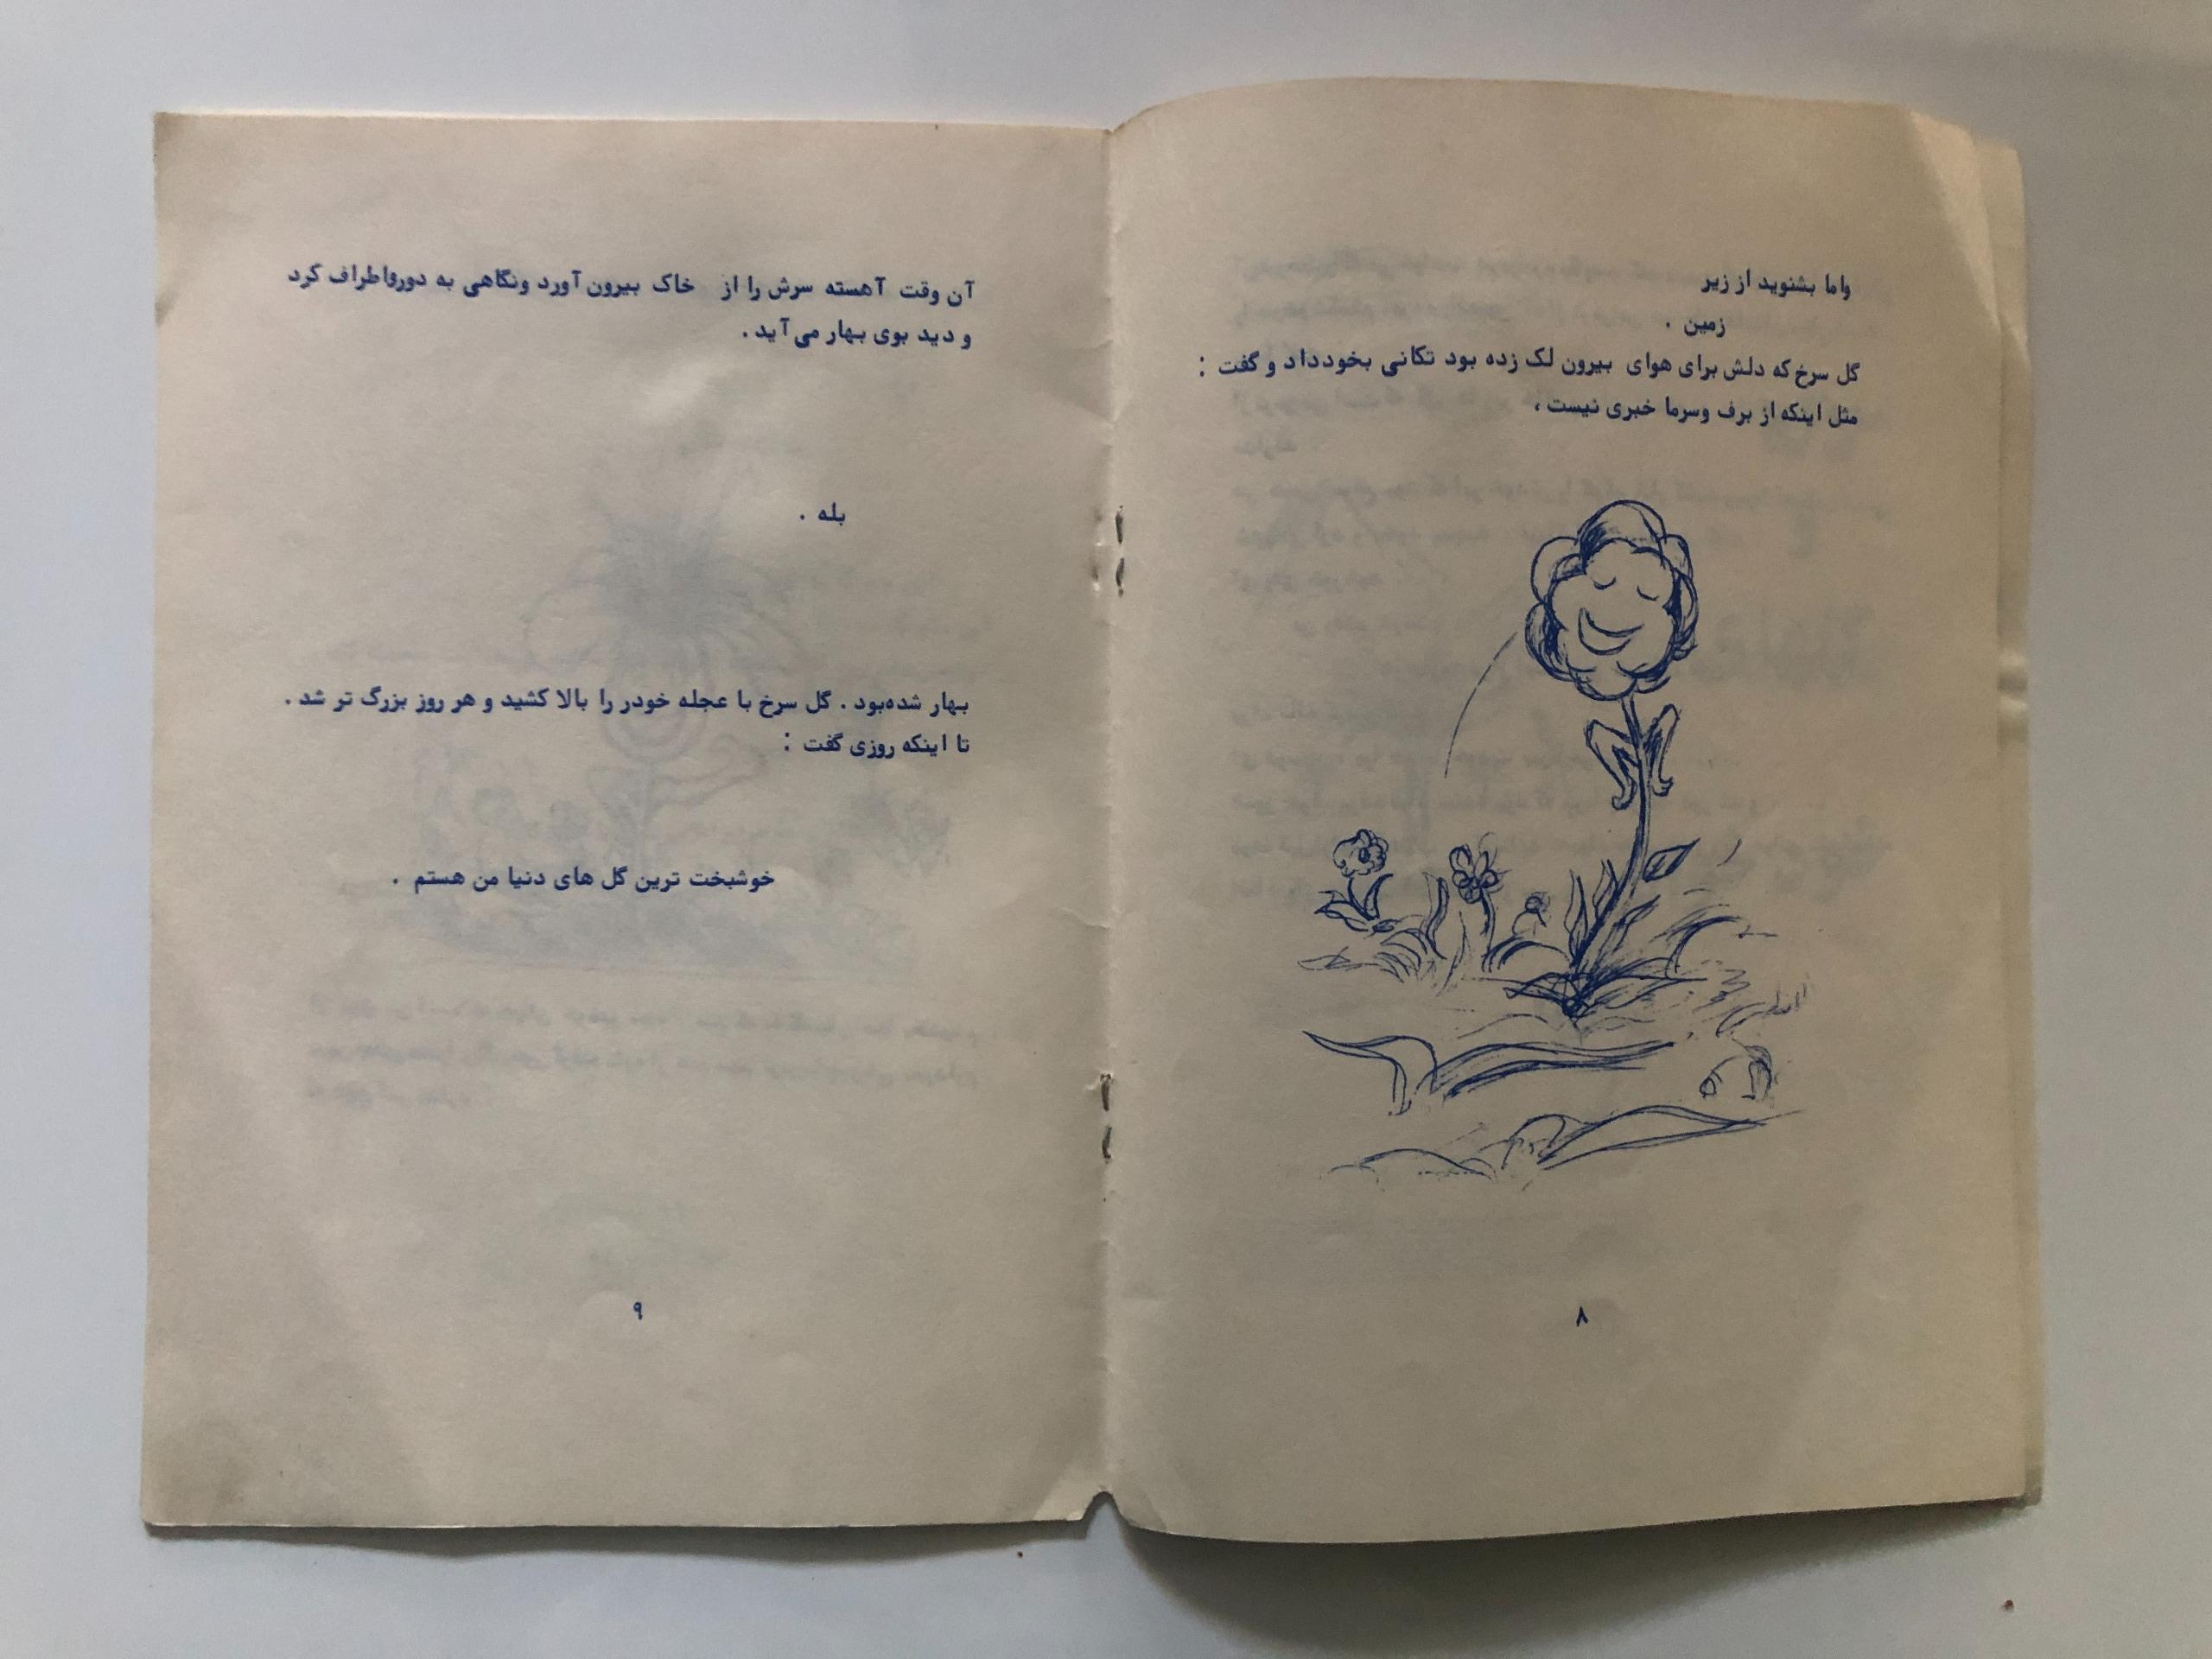 واما بشنوید از زیر
زمین .
گل سرخ که دلش برای هوای بیرون لک زده بود تکانی بخودداد و گفت :
مثل اینکه از برف وسرما خبری نیست ،
۸
آن وقت آهسته سرش را از خاک بیرون آورد ونگاهی به دورواطراف کرد
و دید بوی بهار می‌آید .
بله .
بهار شده‌بود . گل سرخ با عجله خودر را بالا کشید و هر روز بزرگ تر شد .
تا اینکه روزی گفت :
خوشبخت ترین گل های دنیا من هستم .
۹